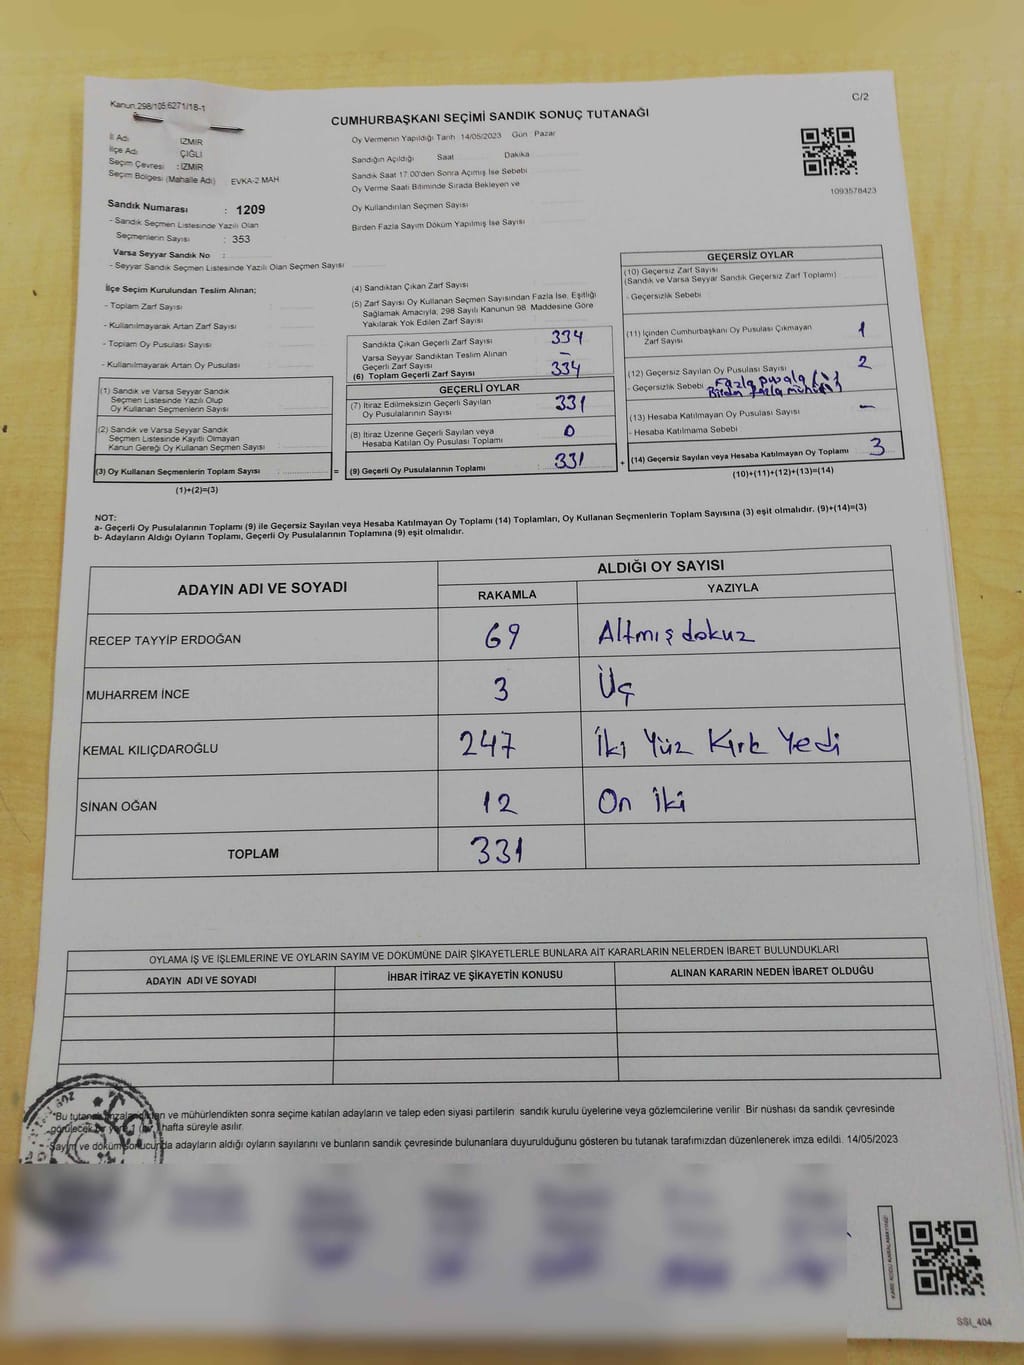 Kanun.298/105.6271/18-1
C/2
CUMHURBAŞKANI SEÇİMİ SANDIK SONUÇ TUTANAĞI
İl Adı : İZMİR
İlçe Adı ÇİĞLİ
Seçim Çevresi : İZMİR
Seçim Bölgesi (Mahalle Adı) : EVKA-2 MAH
Sandık Numarası : 1209
- Sandık Seçmen Listesinde Yazılı Olan
Seçmenlerin Sayısı : 353
Varsa Seyyar Sandık No :
- Seyyar Sandık Seçmen Listesinde Yazılı Olan Seçmen Sayısı
Oy Vermenin Yapıldığı Tarih 14/05/2023 Gün : Pazar
Sandığın Açıldığı Saat Dakika
Sandık Saat 17.00'den Sonra Açımış İse Sebebi
Oy Verme Saati Bitiminde Sırada Bekleyen ve
Oy Kullandırılan Seçmen Sayısı
Birden Fazla Sayım Döküm Yapılmış İse Sayısı
1093578423
İlçe Seçim Kurulundan Teslim Alınan;
- Toplam Zarf Sayısı
- Kullanılmayarak Artan Zarf Sayısı
- Toplam Oy Pusulası Sayısı
- Kullanılmayarak Artan Oy Pusulası
(1) Sandık ve Varsa Seyyar Sandık
Seçmen Listesinde Yazılı Olup
Oy Kullanan Seçmenlerin Sayısı
(2) Sandık ve Varsa Seyyar Sandık
Seçmen Listesinde Kayıtlı Olmayan
Kanun Gereği Oy Kullanan Seçmen Sayısı
(3) Oy Kullanan Seçmenlerin Toplam Sayısı : =
(1)+(2)=(3)
(4) Sandıktan Çıkan Zarf Sayısı
(5) Zarf Sayısı Oy Kullanan Seçmen Sayısından Fazla İse, Eşitliği
Sağlamak Amacıyla; 298 Sayılı Kanunun 98. Maddesine Göre
Yakılarak Yok Edilen Zarf Sayısı
Sandıkta Çıkan Geçerli Zarf Sayısı 334
Varsa Seyyar Sandıktan Teslim Alınan
Geçerli Zarf Sayısı –
(6) Toplam Geçerli Zarf Sayısı 334
GEÇERLİ OYLAR
(7) İtiraz Edilmeksizin Geçerli Sayılan
Oy Pusulalarının Sayısı 331
(8) İtiraz Üzerine Geçerli Sayılan veya
Hesaba Katılan Oy Pusulası Toplamı 0
(9) Geçerli Oy Pusulalarının Toplamı : 331 +
GEÇERSİZ OYLAR
(10) Geçersiz Zarf Sayısı
(Sandık ve Varsa Seyyar Sandık Geçersiz Zarf Toplamı)
- Geçersizlik Sebebi
(11) İçinden Cumhurbaşkanı Oy Pusulası Çıkmayan
Zarf Sayısı 1
(12) Geçersiz Sayılan Oy Pusulası Sayısı 2
- Geçersizlik Sebebi Fazla pusula
Birden fazla mühür
(13) Hesaba Katılmayan Oy Pusulası Sayısı –
- Hesaba Katılmama Sebebi
(14) Geçersiz Sayılan veya Hesaba Katılmayan Oy Toplamı 3
(10)+(11)+(12)+(13)=(14)
NOT:
a- Geçerli Oy Pusulalarının Toplamı (9) ile Geçersiz Sayılan veya Hesaba Katılmayan Oy Toplamı (14) Toplamları, Oy Kullanan Seçmenlerin Toplam Sayısına (3) eşit olmalıdır. (9)+(14)=(3)
b- Adayların Aldığı Oyların Toplamı, Geçerli Oy Pusulalarının Toplamına (9) eşit olmalıdır.
ADAYIN ADI VE SOYADI
ALDIĞI OY SAYISI
RAKAMLA YAZIYLA
RECEP TAYYİP ERDOĞAN 69 Altmış dokuz
MUHARREM İNCE 3 Üç
KEMAL KILIÇDAROĞLU 247 İki Yüz Kırk Yedi
SİNAN OĞAN 12 On İki
TOPLAM 331
OYLAMA İŞ VE İŞLEMLERİNE VE OYLARIN SAYIM VE DÖKÜMÜNE DAİR ŞİKAYETLERLE BUNLARA AİT KARARLARIN NELERDEN İBARET BULUNDUKLARI
ADAYIN ADI VE SOYADI İHBAR İTİRAZ VE ŞİKAYETİN KONUSU ALINAN KARARIN NEDEN İBARET OLDUĞU
"Bu ve mühürlendikten sonra seçime katılan adayların ve talep eden siyasi partilerin sandık kurulu üyelerine veya gözlemcilerine verilir. Bir nüshası da sandık çevresinde
görülecek bir yere 1 hafta süreyle asılır.
Sayım ve döküm sonucunda adayların aldığı oyların sayılarını ve bunların sandık çevresinde bulunanlara duyurulduğunu gösteren bu tutanak tarafımızdan düzenlenerek imza edildi. 14/05/2023
KARE KODU KARALAMAYINIZ!
SSI_404